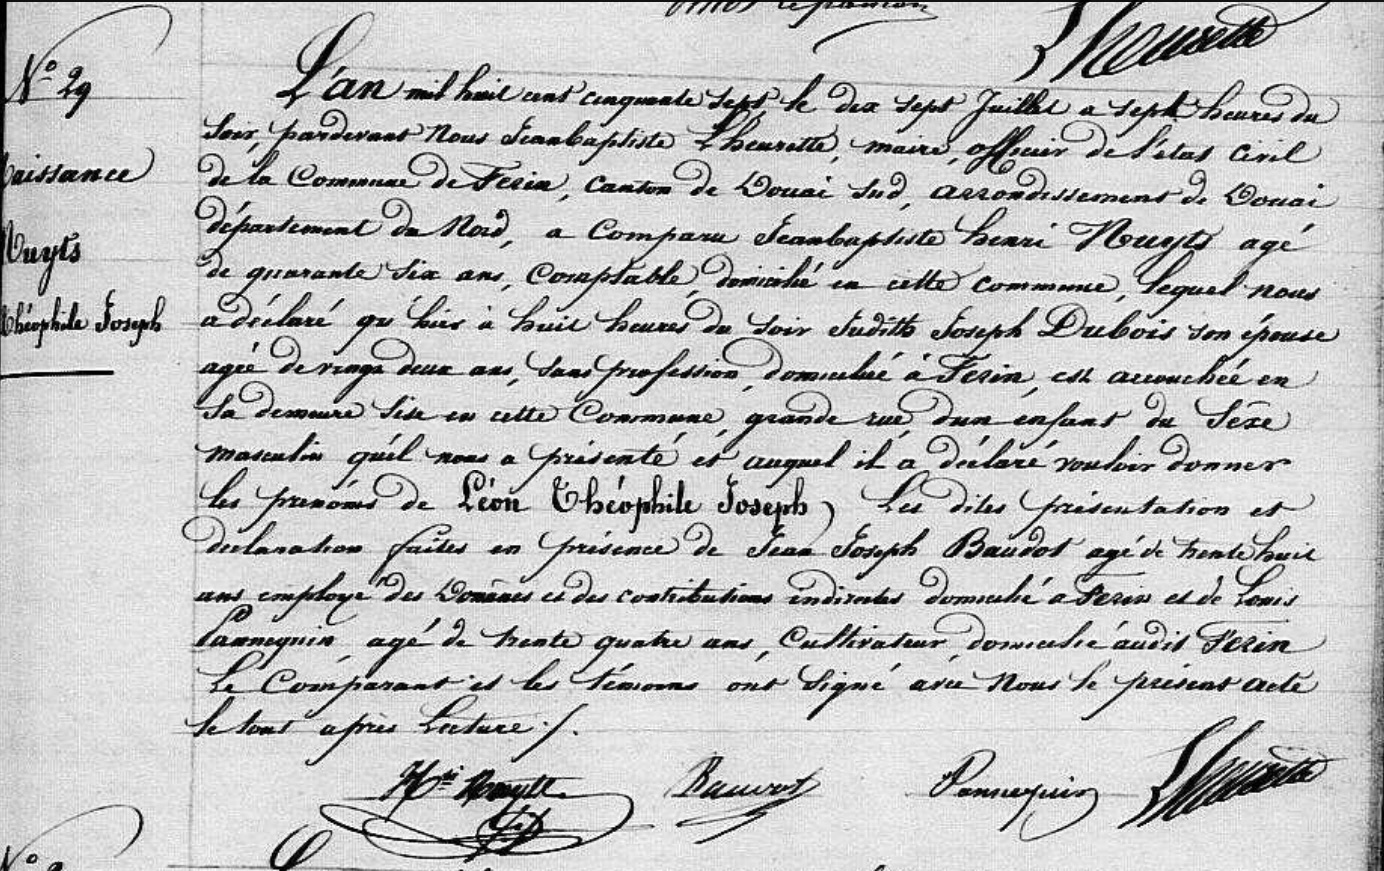 Lheurette
N.º 29
Naissance
Nuyts
Théophile Joseph
L'an mil huit cent cinquante sept le dix sept Juillet a sept heures du
soir, pardevant Nous Jeanbaptiste Lheurette, maire, officier de l'état Civil
de la Commune de Ferin, Canton de Douai Sud, arrondissement de Douai
département du Nord, a Comparu Jeanbaptiste henri Nuyts agé
de quarante six ans, Comptable, domicilié en cette commune, lequel nous
a déclaré qu'hier à huit heures du soir Judith Joseph Dubois son épouse
agée de vingt deux ans, sans profession, domiciliée à Ferin, est accouchée en
sa demeure sise en cette Commune, grande rue, d'un enfant du Sexe
masculin qu'il nous a présenté et auquel il a déclaré vouloir donner
les prénoms de Léon Théophile Joseph, Les dites présentation et
déclaration faites en présence de Jean Joseph Baudot agé de trente huit
ans employé des Domaines et des contributions indirectes domicilié a Ferin et de Louis
Pannequin, agé de trente quatre ans, Cultivateur, domicilié audit Ferin
Le Comparant et les témoins ont signé avec Nous le présent acte
le tout après Lecture ./.
Hri Nuyts Baudot Pannequin Lheurette